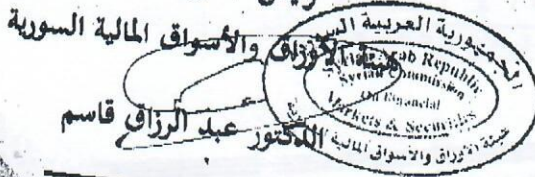 هيئة الأوراق والأسواق المالية السورية
الدكتور عبد الرزاق قاسم
الجمهورية العربية السورية
Syrian Arab Republic
Syrian Commission
On Financial
Markets & Securities
هيئة الأوراق والأسواق المالية